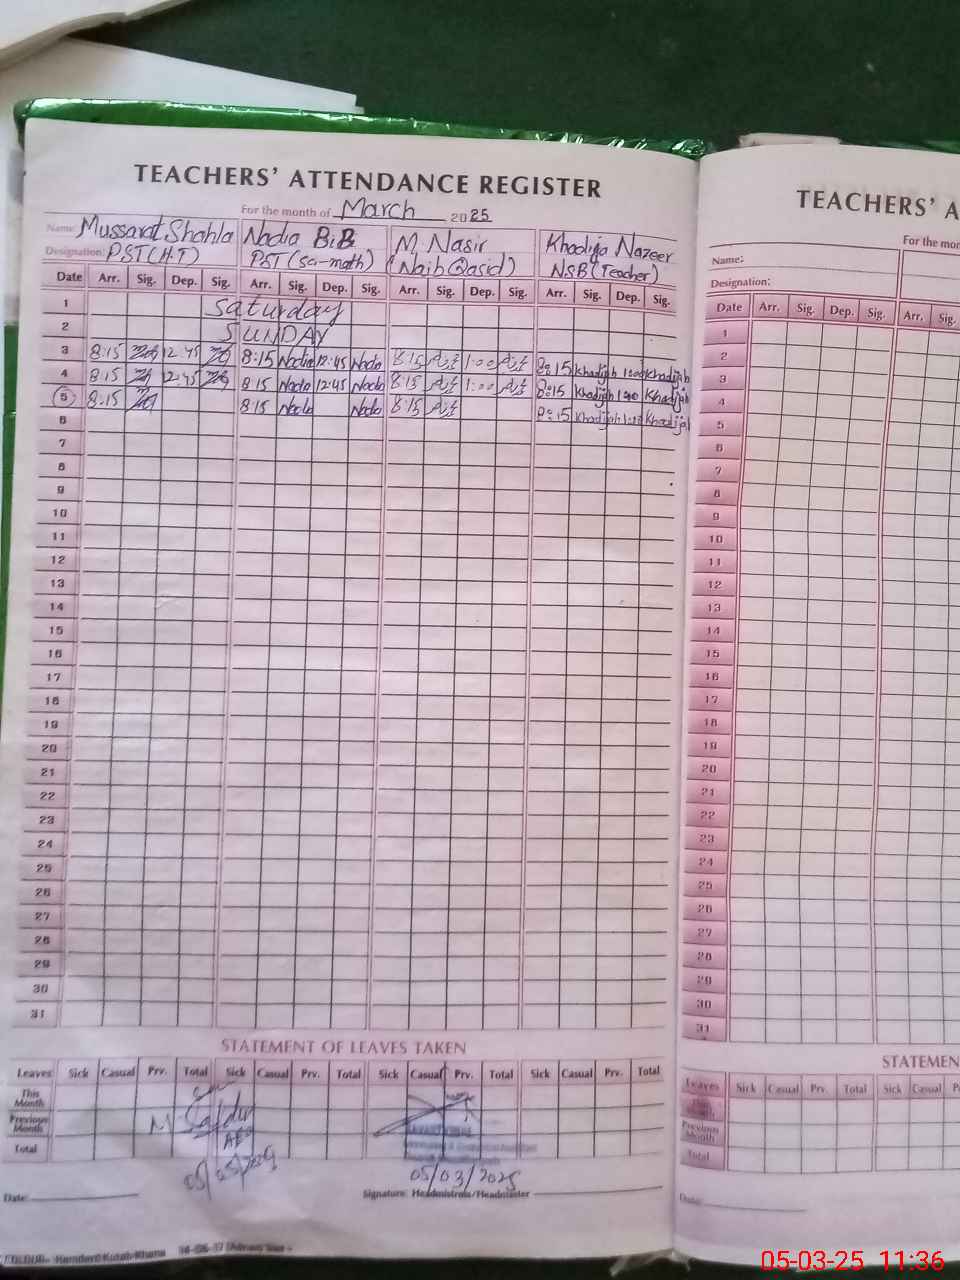 TEACHERS' ATTENDANCE REGISTER
For the month of March 2025
Name: Mussarat Shahla Nadia BiBi M. Nasir Khadija Nazeer
Designation: PST(H.T) PST (Sci-math) (Naib Qasid) NSB (Teacher)
Date Arr. Sig. Dep. Sig. Arr. Sig. Dep. Sig. Arr. Sig. Dep. Sig. Arr. Sig. Dep. Sig.
1 Saturday
2 SUNDAY
3 8:15 12:45 8:15 Nadia 12:45 Nadia 8:15 1:00 8:15 Khadijah 1:00 Khadijah
4 8:15 12:45 8:15 Nadia 12:45 Nadia 8:15 1:00 8:15 Khadijah 1:00 Khadijah
5 8:15 8:15 Nadia Nadia 8:15 8:15 Khadijah Khadijah
6
7
8
9
10
11
12
13
14
15
16
17
18
19
20
21
22
23
24
25
26
27
28
29
30
31
STATEMENT OF LEAVES TAKEN
Leaves Sick Casual Prv. Total Sick Casual Prv. Total Sick Casual Prv. Total Sick Casual Prv. Total
This Month
Previous Month
Total
AEO
05/03/2025
05/03/2025
Date:
Signature: Headmistress/Headmaster
TEACHERS' A
For the mon
Name:
Designation:
Date Arr. Sig. Dep. Sig. Arr. Sig.
1
2
3
4
5
6
7
8
9
10
11
12
13
14
15
16
17
18
19
20
21
22
23
24
25
26
27
28
29
30
31
STATEMEN
Leaves Sick Casual Prv. Total Sick Casual
This Month
Previous Month
Total
Date:
05-03-25 11:36